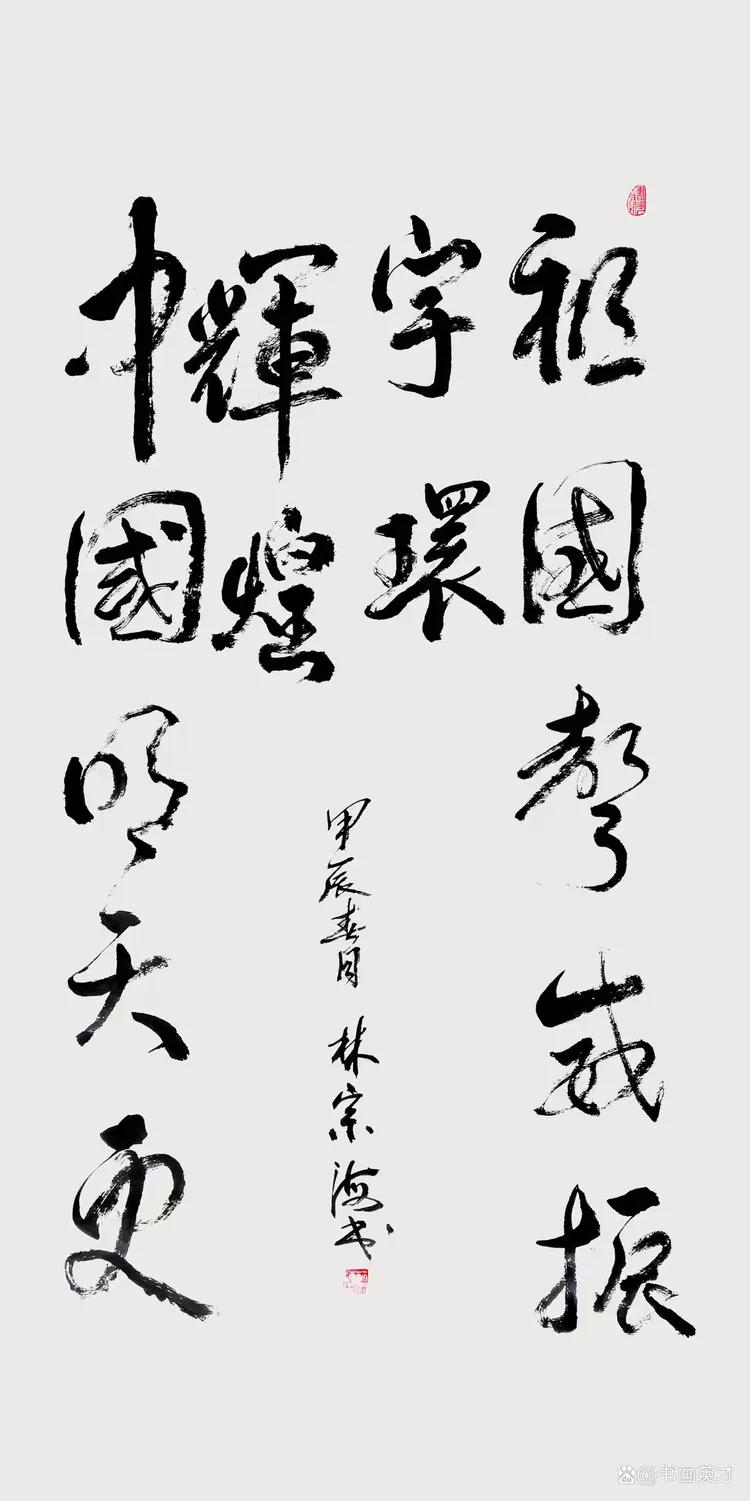 祖國聲威振
宇環
中國明天更
輝煌
甲辰春月 林宗海书
@书画英才